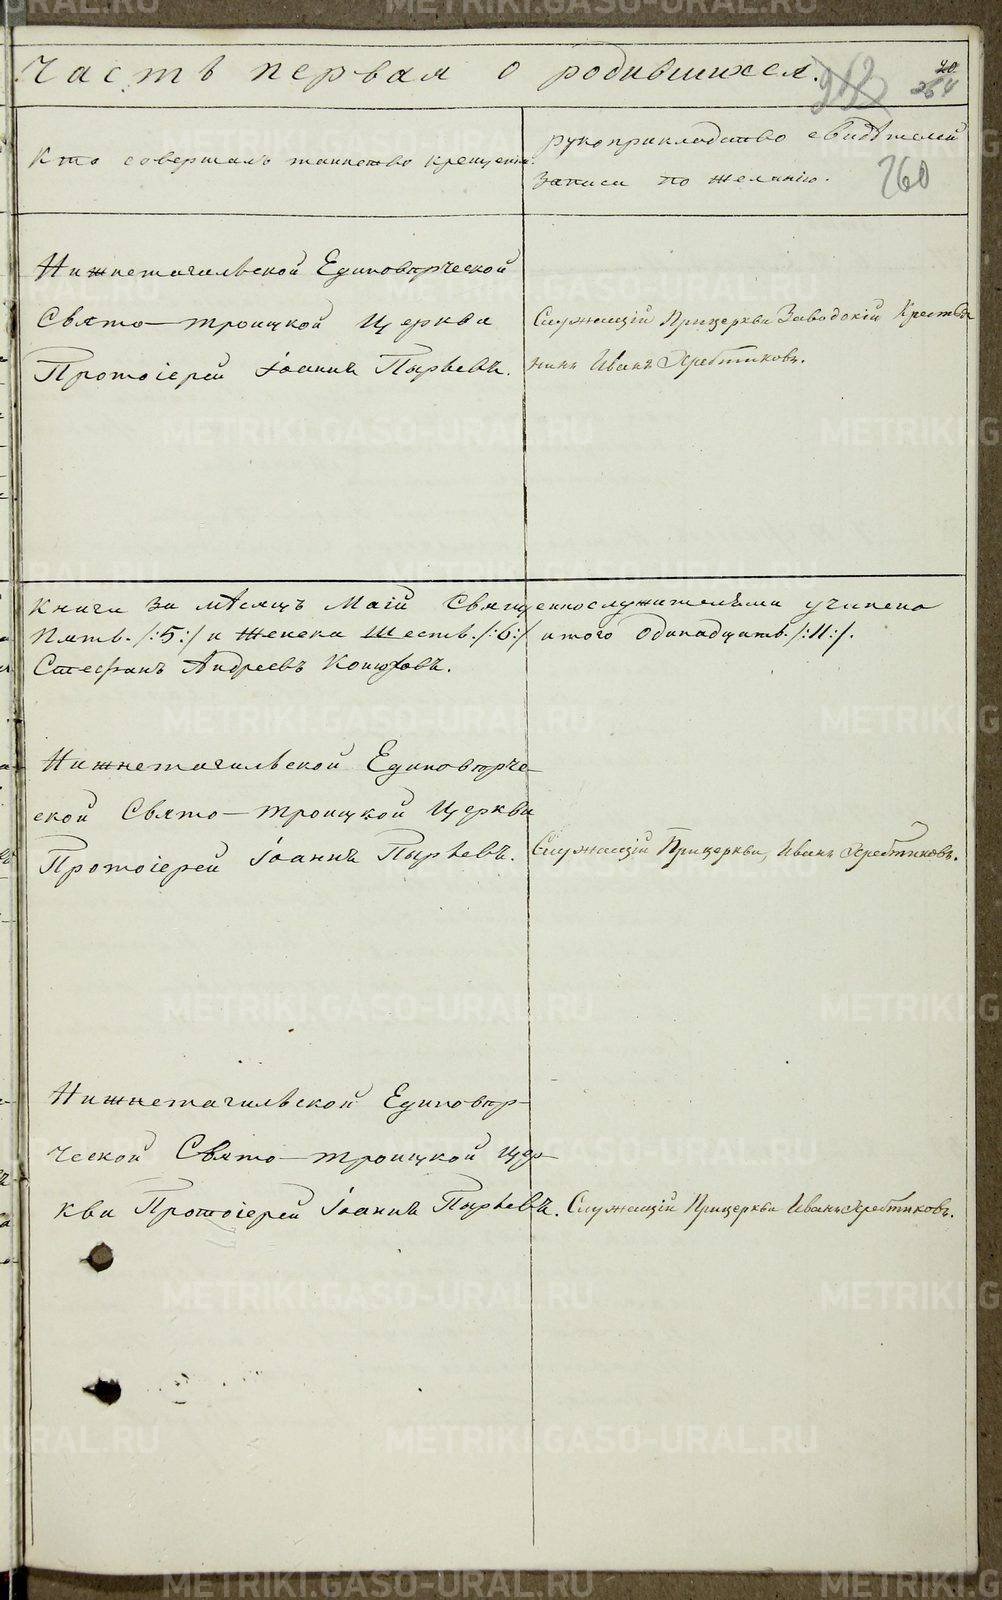 Часть первая о родившихся.
20
264
260
Кто совершалъ таинство крещенiя.
рукоприкладство свидѣтелей
записи по желанiю.
Нижнетагильской Единовѣрческой
Свято-Троицкой Церкви
Протоiерей Iоаннъ Пырьевъ.
Служащiй Прицеркви Заводскiй Крестья
нинъ Иванъ Хребтиковъ.
Книги за мѣсяцъ Маiй Священнослужителями учинена
Пять. /:5:/ и Женска Шесть. /:6:/ итого Одинадцать. /:11:/.
Стефанъ Андреевъ Конюховъ.
Нижнетагильской Единовѣрче-
ской Свято-Троицкой Церкви
Протоiерей Iоаннъ Пырьевъ.
Служащiй Прицеркви, Иванъ Хребтиковъ.
Нижнетагильской Единовѣр-
ческой Свято-Троицкой Цер-
кви Протоiерей Iоаннъ Пырьевъ.
Служащiй Прицеркви Иванъ Хребтиковъ.
METRIKI.GASO-URAL.RU